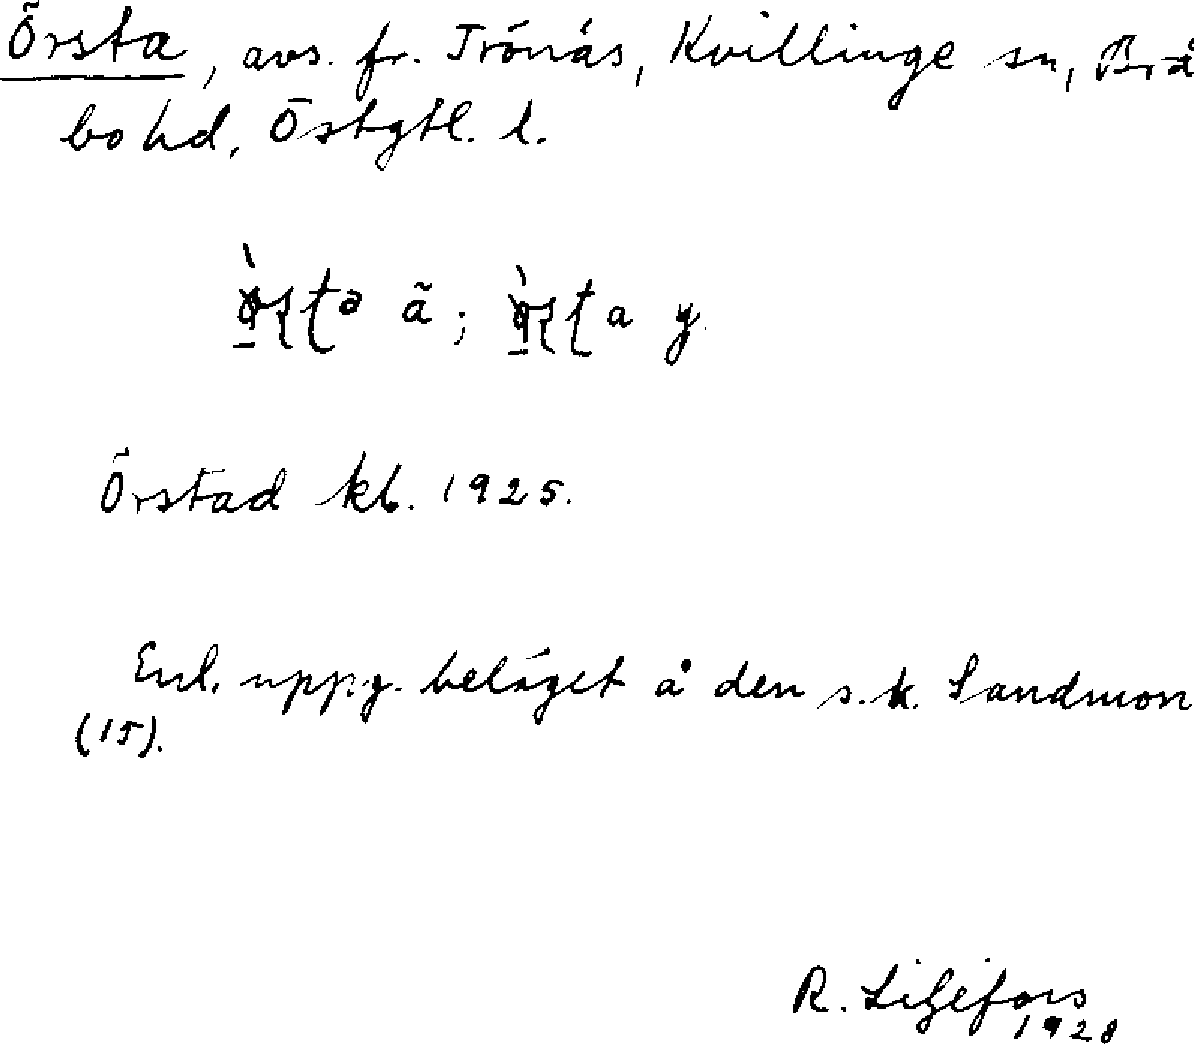 Örsta, avs. fr. Trönäs, Kvillinge sn, Brå
bo hd, Östgtl. l.
ã; y
Örstad kb. 1925.
Enl. uppg. beläget å den s.k. Sandmon
(15).
R. Liljefors
1928